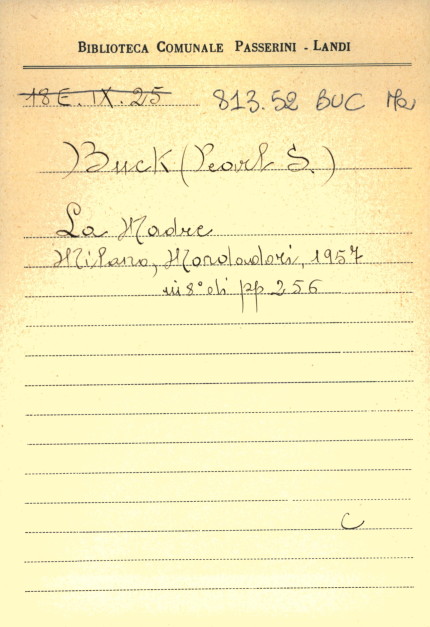 BIBLIOTECA COMUNALE PASSERINI - LANDI
18 E. IX. 25 813.52 BUC Ma
Buck (Pearl S.)
La Madre
Milano, Mondadori, 1957
in 8° di pp 256
C